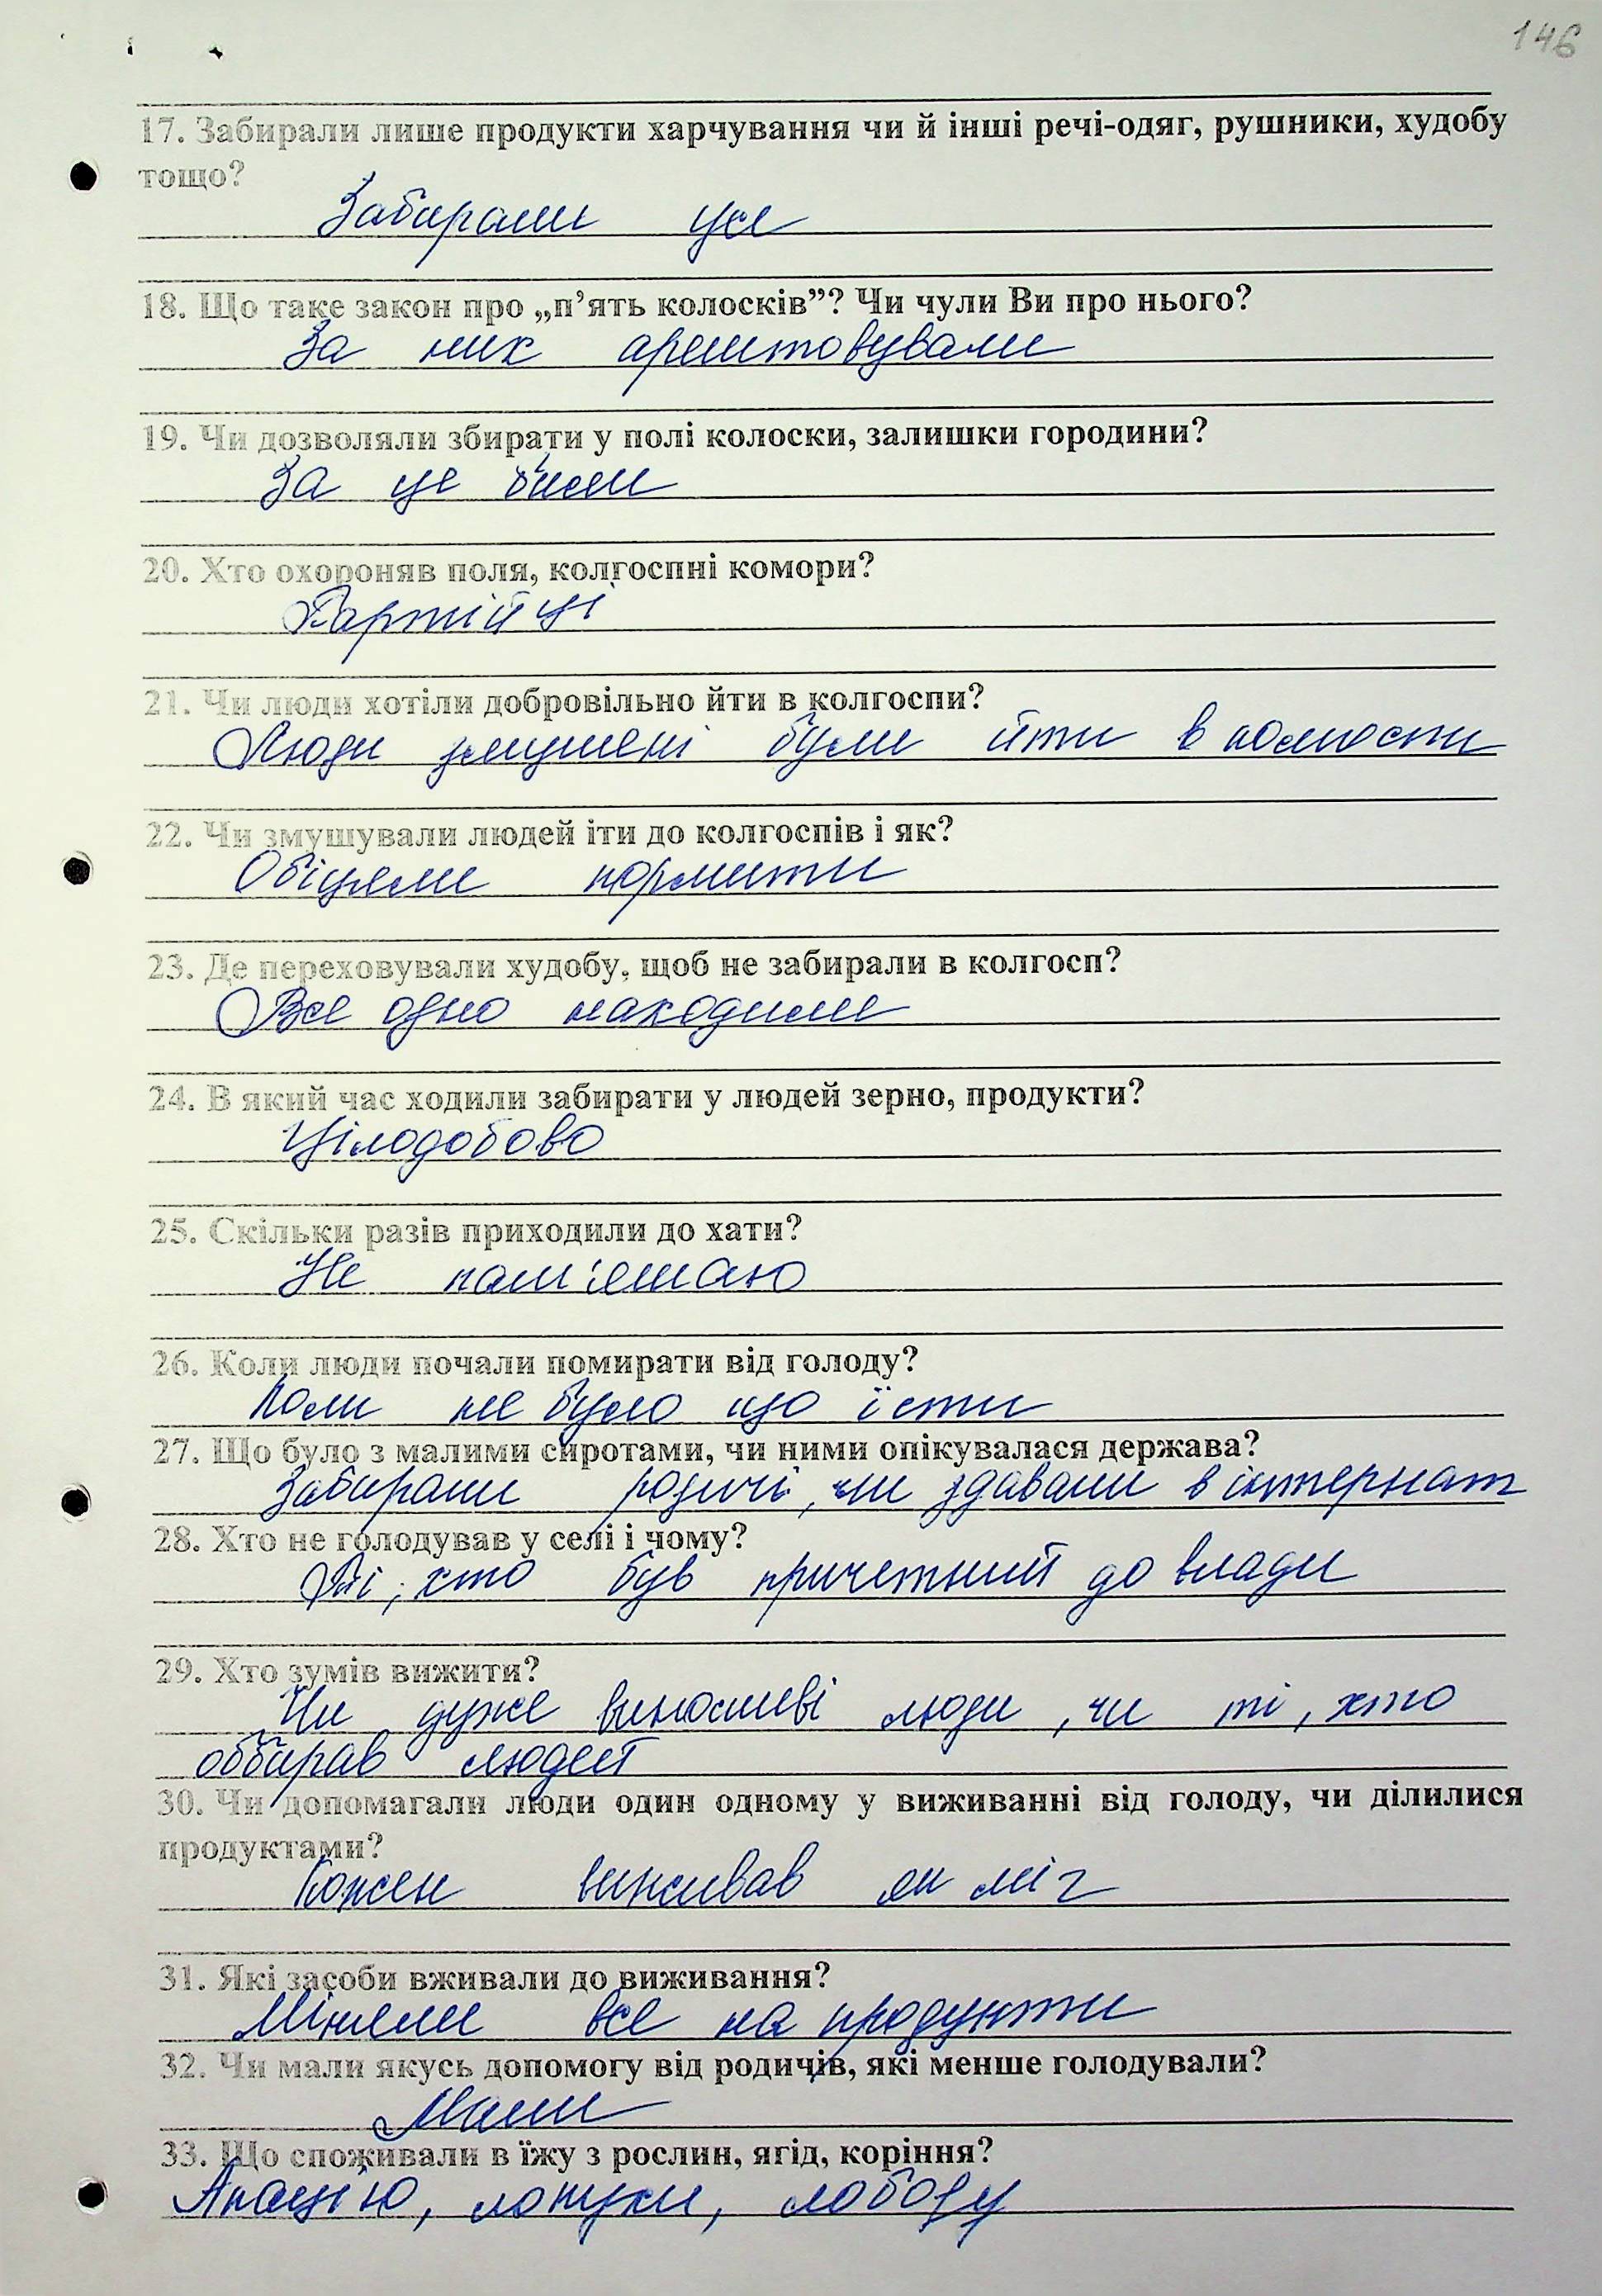 146
17. Забирали лише продукти харчування чи й інші речі-одяг, рушники, худобу
тощо?
Забирали усе
18. Що таке закон про „п’ять колосків”? Чи чули Ви про нього?
За них арештовували
19. Чи дозволяли збирати у полі колоски, залишки городини?
За це били
20. Хто охороняв поля, колгоспні комори?
Партійці
21. Чи люди хотіли добровільно йти в колгоспи?
Люди змушені були йти в колгоспи
22. Чи змушували людей іти до колгоспів і як?
Обіцяли кормити
23. Де переховували худобу, щоб не забирали в колгосп?
Все одно находили
24. В який час ходили забирати у людей зерно, продукти?
Цілодобово
25. Скільки разів приходили до хати?
Не пам'ятаю
26. Коли люди почали помирати від голоду?
Коли не було що їсти
27. Що було з малими сиротами, чи ними опікувалася держава?
Забирали родичі, чи здавали в інтернат
28. Хто не голодував у селі і чому?
Ті, хто був причетний до влади
29. Хто зумів вижити?
Чи дуже виносливі люди, чи ті, хто
оббирав людей
30. Чи допомагали люди один одному у виживанні від голоду, чи ділилися
продуктами?
Кожен виживав як міг
31. Які засоби вживали до виживання?
Міняли все на продукти
32. Чи мали якусь допомогу від родичів, які менше голодували?
Мали
33. Що споживали в їжу з рослин, ягід, коріння?
Акацію, лопухи, лободу